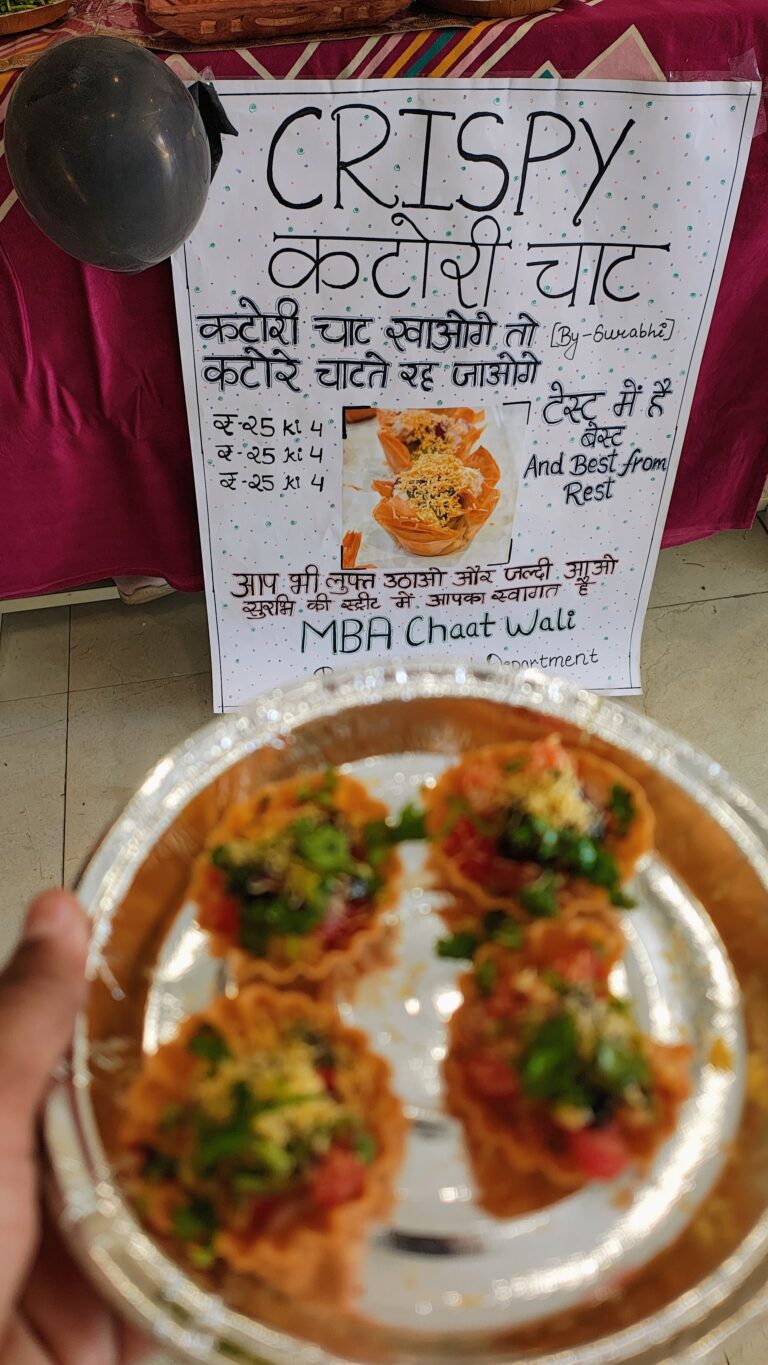 CRISPY
कटोरी चाट
कटोरी चाट खाओगे तो [By-Surabhi]
कटोरे चाटते रह जाओगे
₹-25 ki 4
₹-25 ki 4
₹-25 ki 4
टेस्ट में है
बेस्ट
And Best from
Rest
आप भी लुफ्त उठाओ और जल्दी आओ
सुरभि की स्ट्रीट में आपका स्वागत है
MBA Chaat Wali
Department